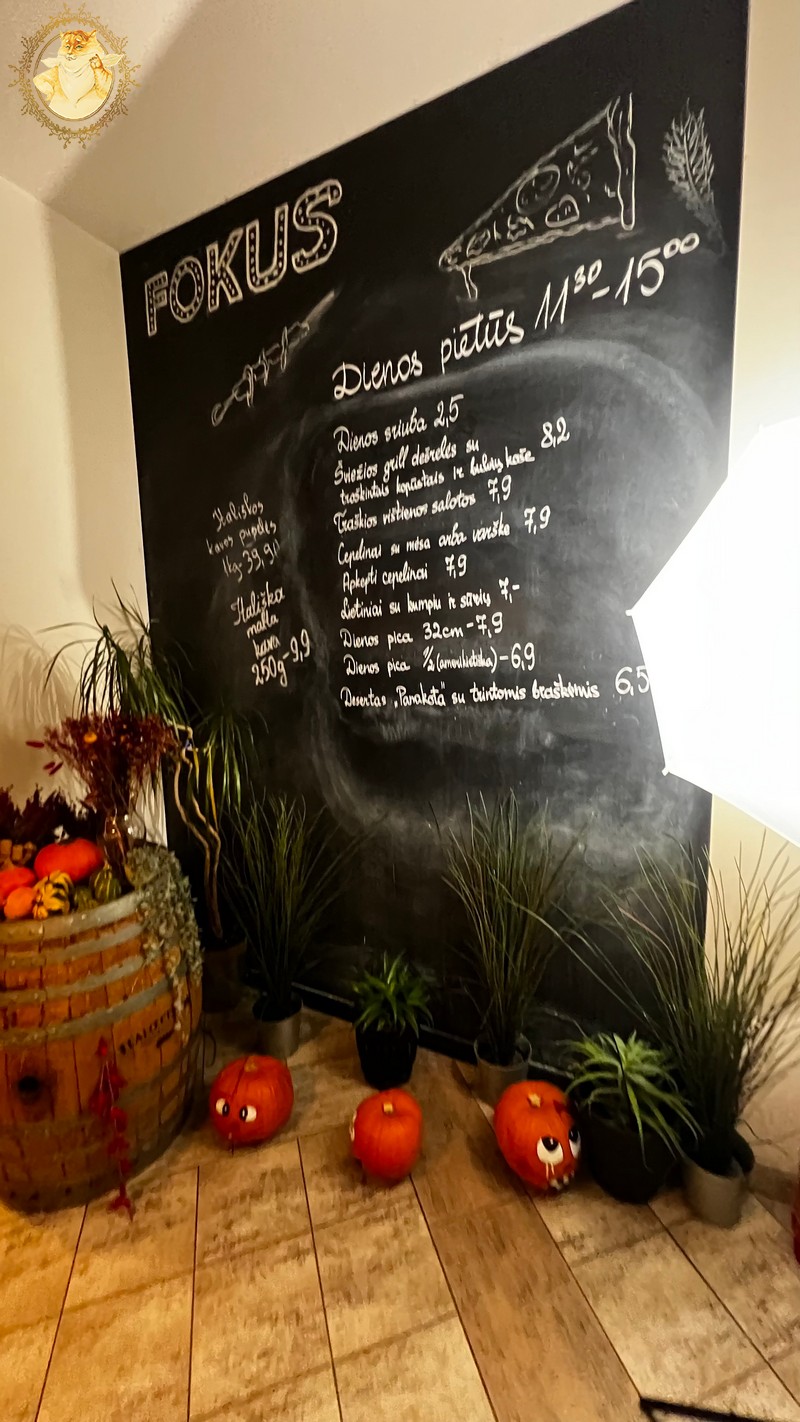 FOKUS
Dienos pietūs 11³⁰-15⁰⁰
Dienos sriuba 2,5
Šviežios grill dešrelės su
traškintais kopūstais ir bulvių koše 8,2
Traškios vištienos salotos 7,9
Cepelinai su mėsa arba varške 7,9
Apkepti cepelinai 7,9
Lietiniai su kumpiu ir sūriu 7,-
Dienos pica 32cm-7,9
Dienos pica ½ (amerikietiška)-6,9
Desertas „Panakota" su trintomis braškėmis 6,5
Itališkos
kavos pupelės
1kg-39,9
Itališka
malta
kava
250g-9,9